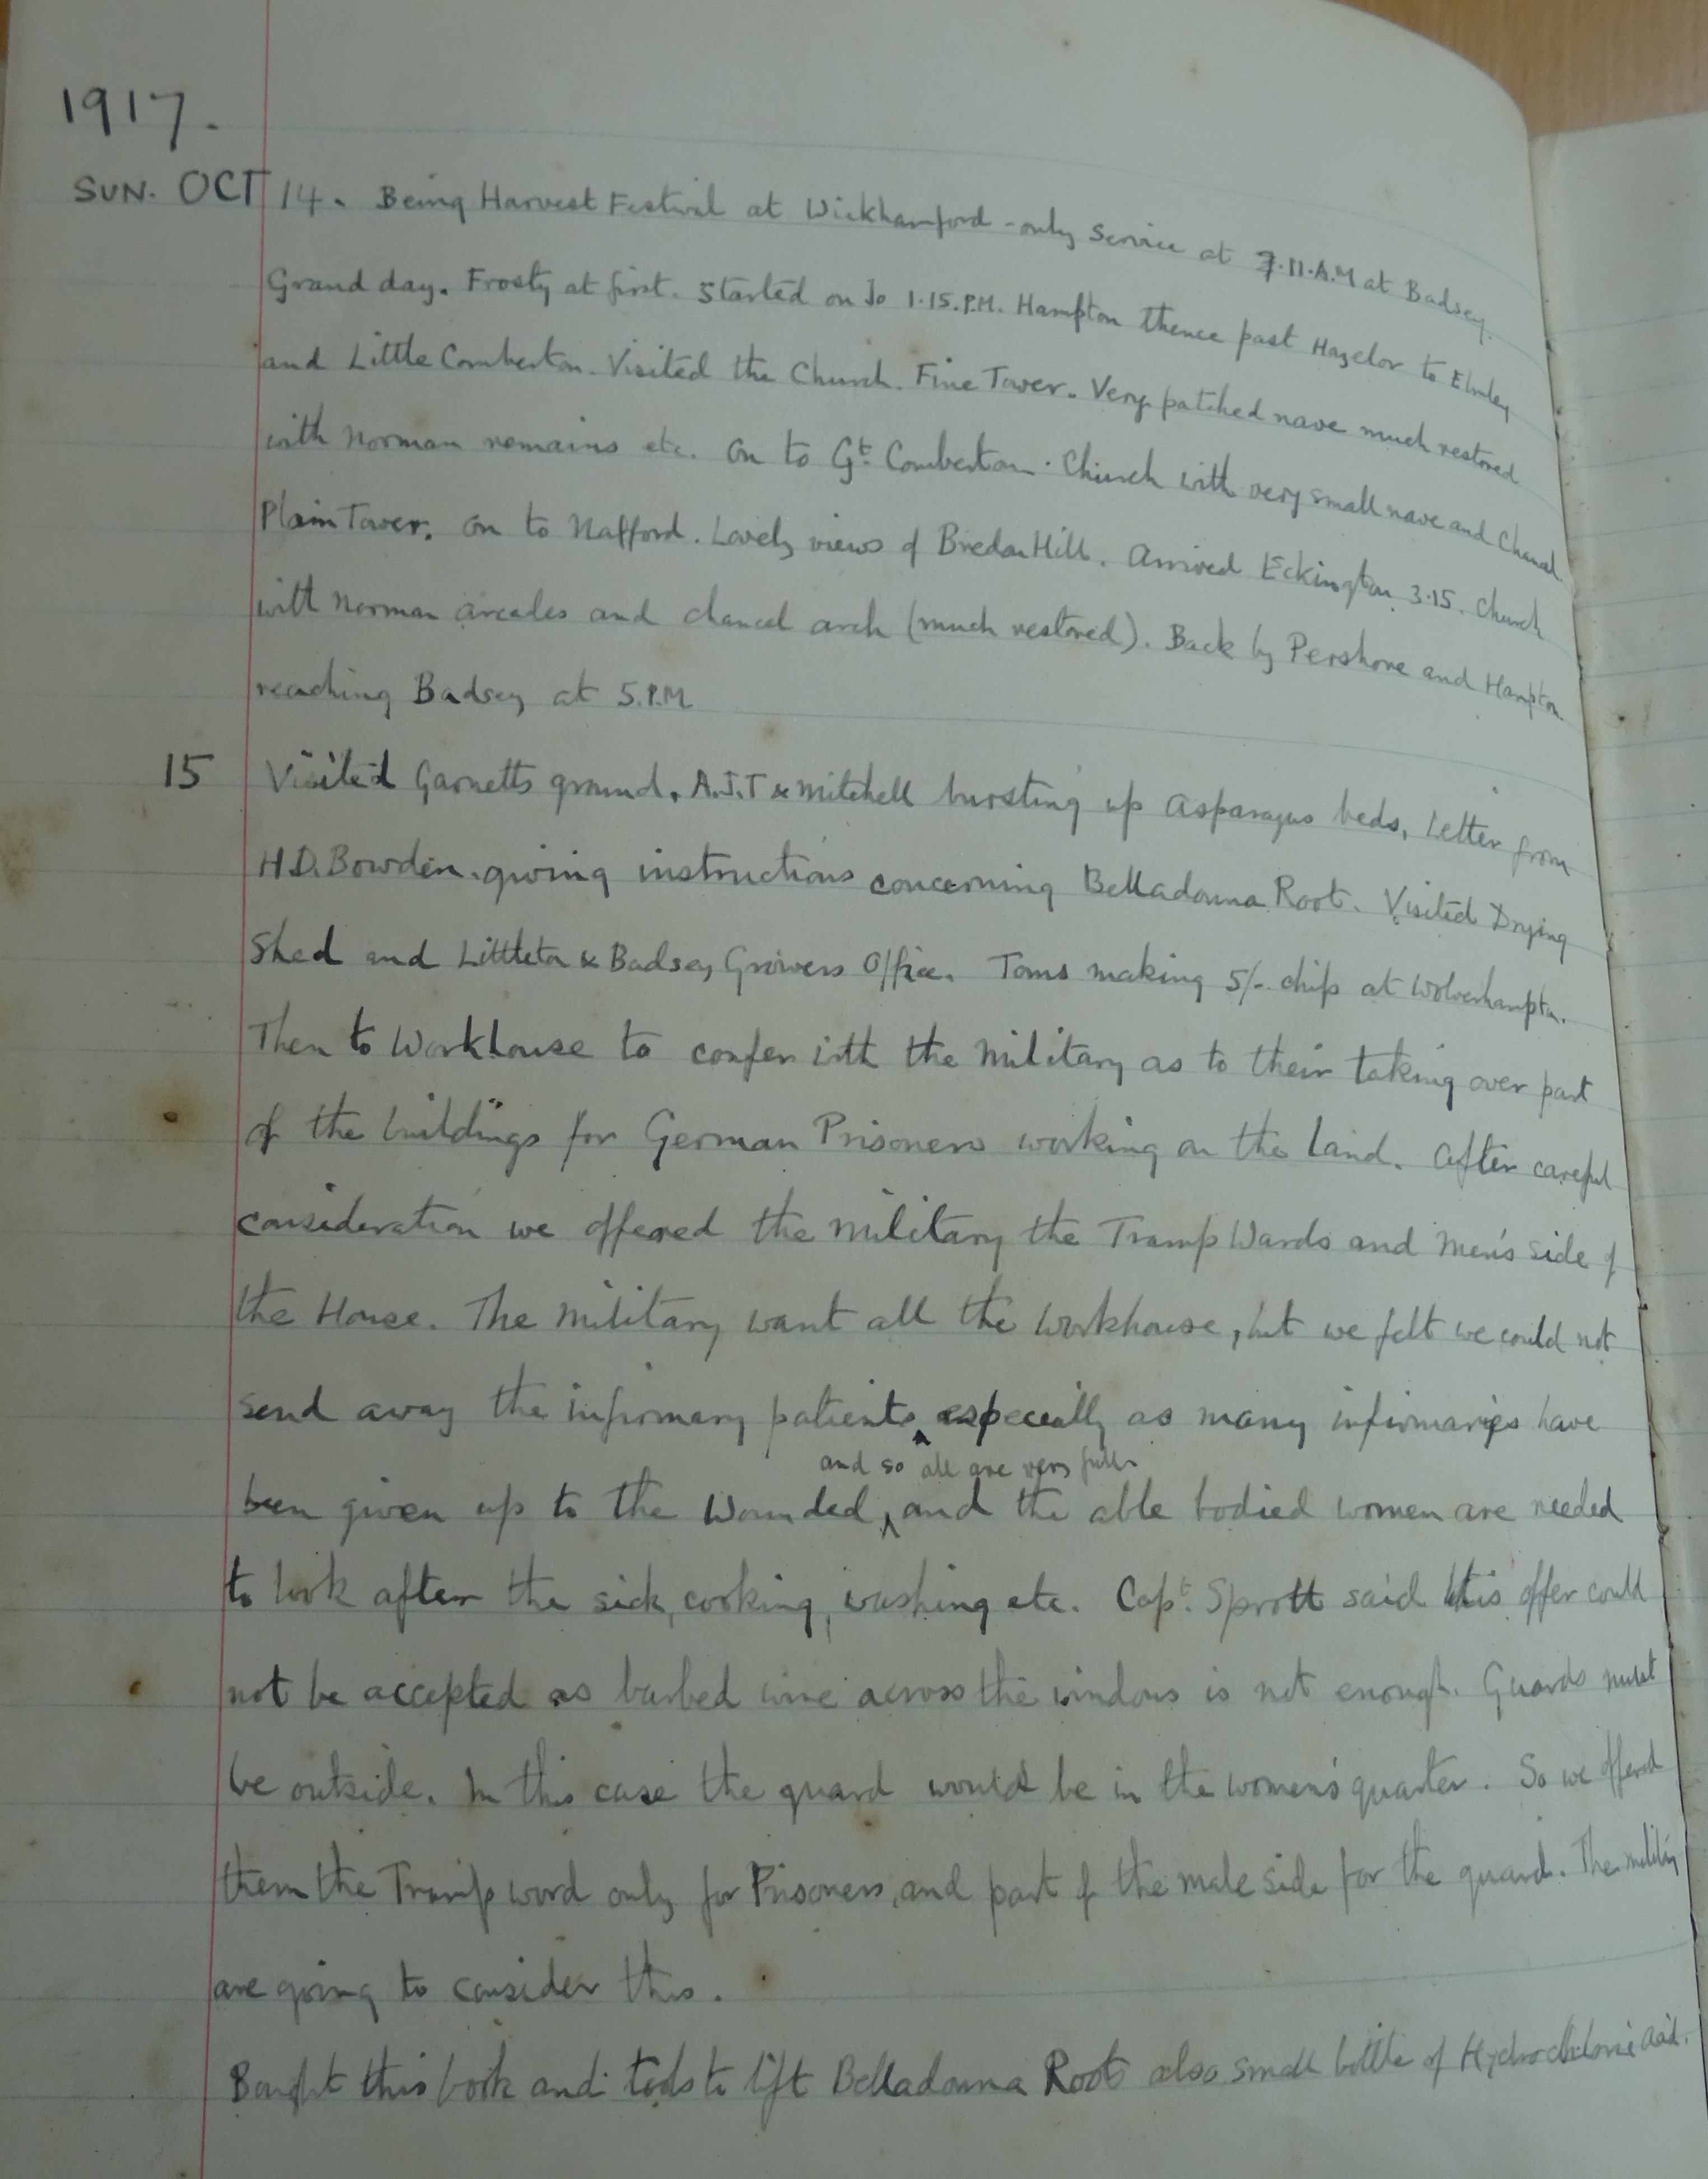 1917.
SUN. OCT 14. Being Harvest Festival at Wickhamford - only Service at 7.11.A.M at Badsey.
Grand day. Frosty at first. Started on Jo 1.15.P.M. Hampton thence past Hazelor to Elmley
and Little Comberton. Visited the Church. Fine Tower. Very patched nave much restored
with Norman remains etc. On to Gt. Comberton. Church with very small nave and Chancel
Plain Tower. On to Nafford. Lovely views of Bredon Hill. Arrived Eckington 3.15. Church
with Norman arcades and chancel arch (much restored). Back by Pershore and Hampton
reaching Badsey at 5.P.M
15 Visited Garnetts ground. A.J.T & Mitchell bursting up Asparagus beds. Letter from
H.D. Bowden giving instructions concerning Belladonna Root. Visited Drying
Shed and Littleton & Badsey Growers Office. Toms making 5/- chip at Wolverhampton.
Then to Workhouse to confer with the Military as to their taking over part
of the buildings for German Prisoners working on the land. After careful
consideration we offered the Military the Tramp Wards and Men's side of
the House. The Military want all the Workhouse, but we felt we could not
send away the infirmary patients, especially as many infirmaries have
and so all are very full
been given up to the Wounded, and the able bodied women are needed
to look after the sick, cooking, washing etc. Capt. Sprott said this offer could
not be accepted as barbed wire across the windows is not enough. Guards must
be outside. In this case the guard would be in the women's quarter. So we offered
them the Tramp ward only for Prisoners, and part of the male side for the guard. The military
are going to consider this.
Bought this book and tools to lift Belladonna Roots also small bottle of Hydrochloric Acid.